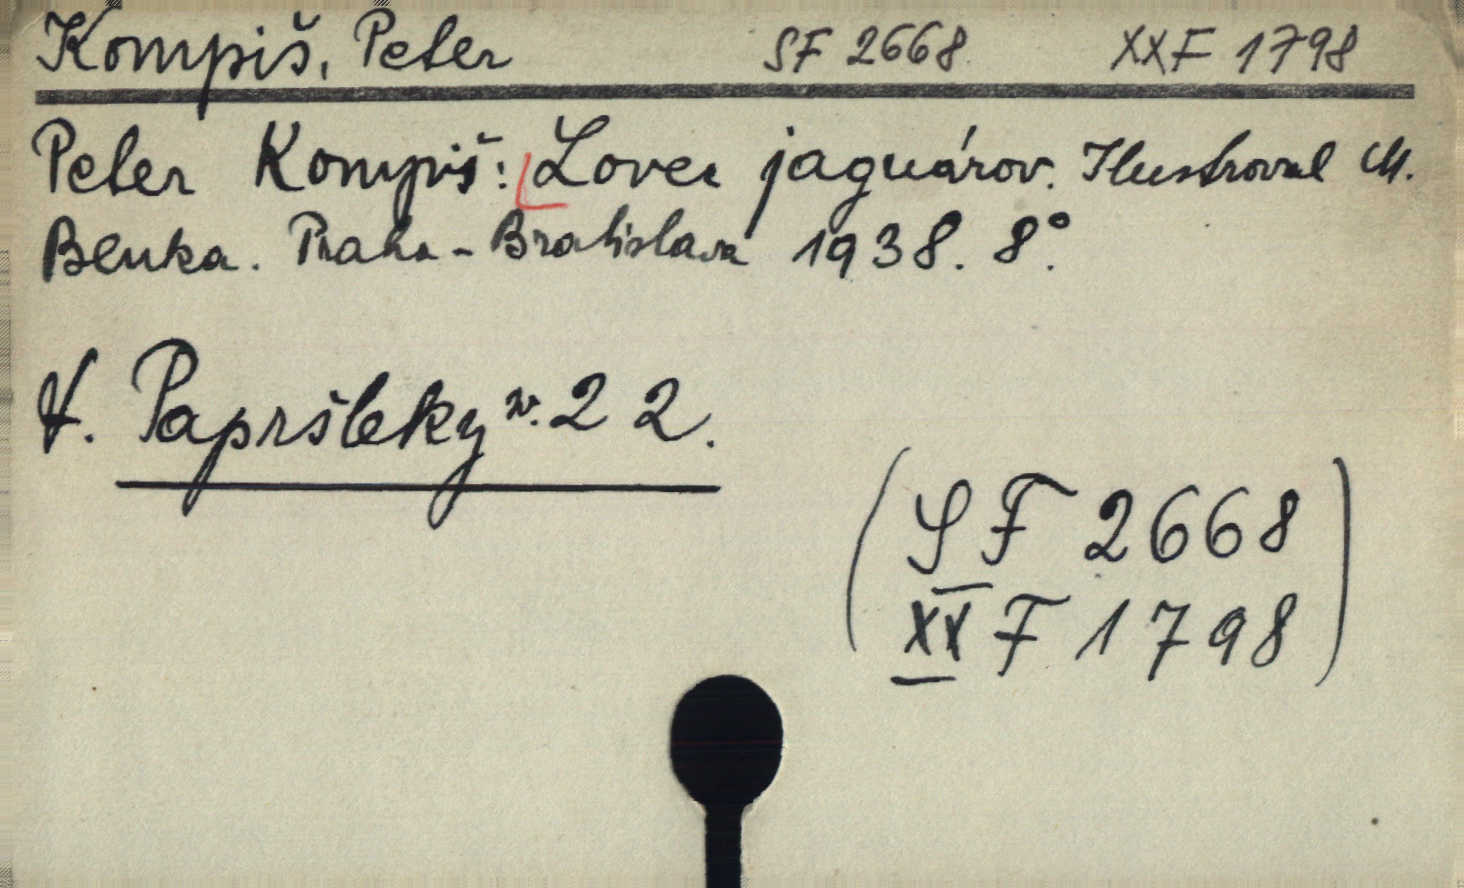 Kompiš, Peter SF 2668 XXF 1798
Peter Kompiš: Lovec jaguárov. Ilustroval M.
Benka. Praha-Bratislava 1938. 8°.
V. Papršleky sv. 22.
(SF 2668
XX F 1798)